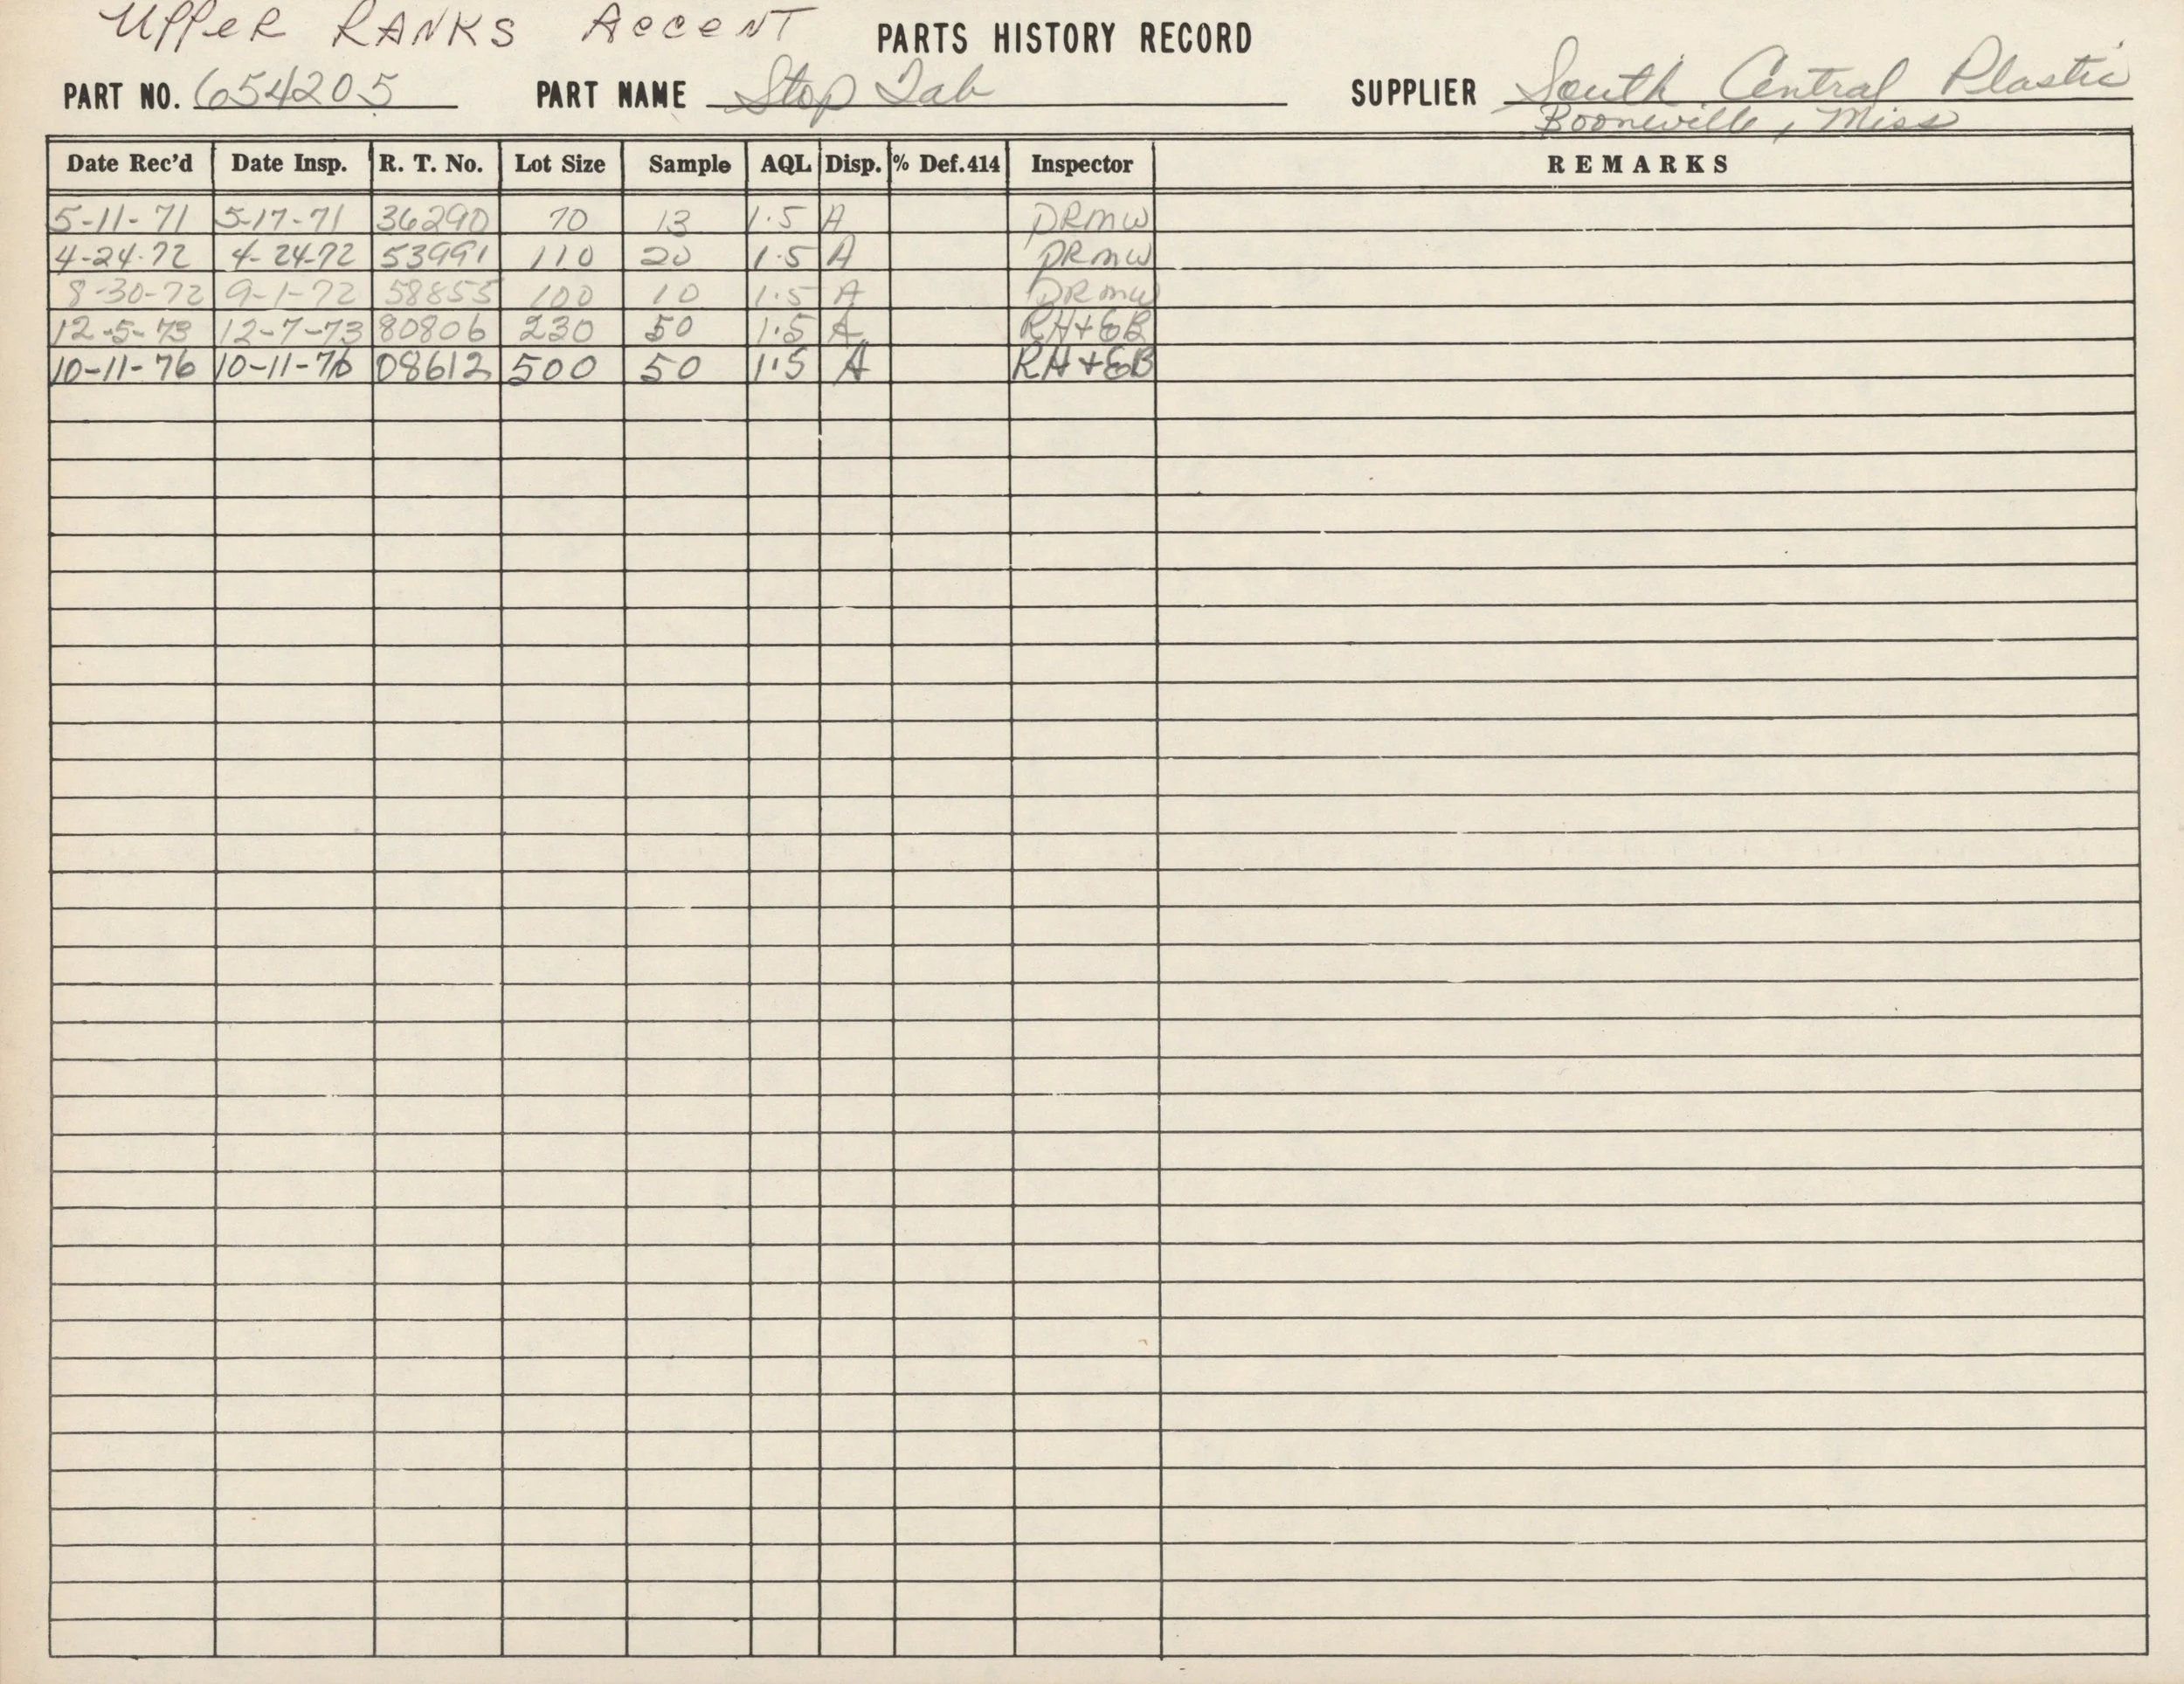 UPPER RANKS ACCENT
PARTS HISTORY RECORD
PART NO. 654205 PART NAME Stop Tab SUPPLIER South Central Plastic
Booneville, Miss
Date Rec'd Date Insp. R. T. No. Lot Size Sample AQL Disp. % Def.414 Inspector REMARKS
5-11-71 5-17-71 36290 70 13 1.5 A DRMW
4-24-72 4-24-72 53991 110 20 1.5 A DRMW
8-30-72 9-1-72 58855 100 10 1.5 A DRMW
12-5-73 12-7-73 80806 230 50 1.5 A RH+EB
10-11-76 10-11-76 08612 500 50 1.5 A RH+EB